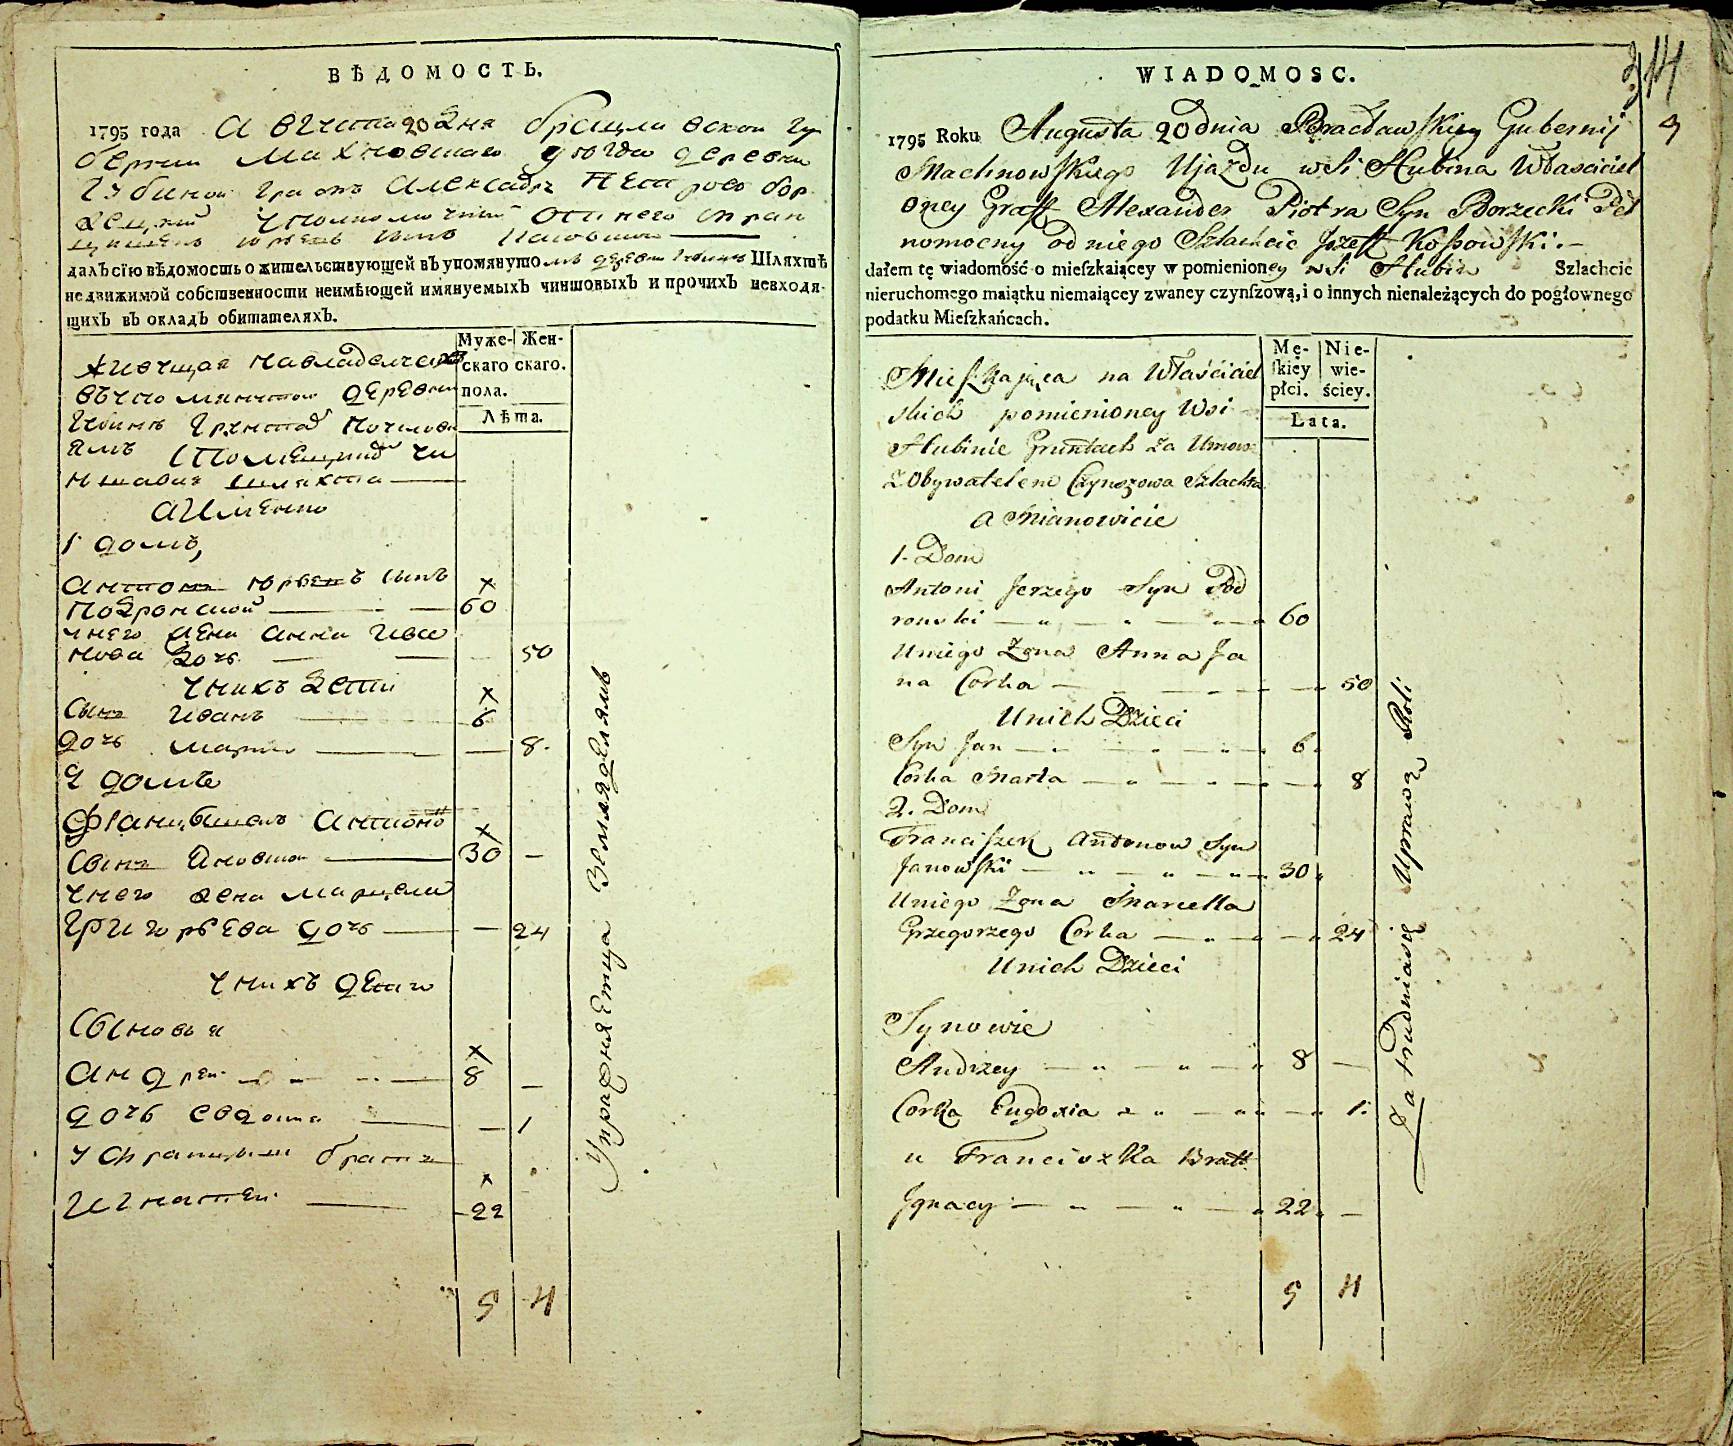 ВѢДОМОСТЬ.
1795 года Августа 20 дня Брацлавской Гу
берніи Махновскаго уѣзда деревни
Губиной Графъ Александръ Петровъ Бор
жецкій Уполномочный отъ него
далъ сію вѣдомость о жительствующей въ упомянутомъ деревни Губинѣ Шляхтѣ
недвижимой собственности неимѣющей имянуемыхъ чиншовыхъ и прочихъ невходя-
щихъ въ окладъ обитателяхъ.
Муже- Жен-
скаго скаго.
пола.
Лѣта.
Живущая на владельческо
въ упомянутой деревни
Губинѣ грунтах по условi
ямъ с помещикомъ чи
ншовая шляхта
а имѣнно
1 домъ,
Антонъ Юрьевъ сынъ x
Подронской 60
у него жена Анна Ива
нова дочь 50
у нихъ дети
сынъ Иванъ x 6
дочь Марта 8.
2 домъ
Францышекъ Антоно
сынъ Яновский x 30 —
у него жена Марцела
Григорьева дочь — 24
у нихъ дети
сыновья
Андрей x 8 —
дочь Евдокiя — 1
у Францышка братъ
Игнатей x 22
5 4
Упражняетца Земляделямъ
WIADOMOSC.
14
1795 Roku Augusta 20 dnia Bracławskiey Gubernij
Machnowskiego Ujazdu wsi Hubina Właściciel
oney Graff Alexander Piotra Syn Borzecki Peł
nomocny od niego Szlachcic Jozeff Kossowski.—
dałem tę wiadomość o mieſzkaiącey w pomienioney wsi Hubin Szlachcic
nieruchomego maiątku niemaiącey zwaney czynſzową, i o innych nienależących do pogłownego
podatku Mieſzkańcach.
Mę- Nie-
ſkiey wie-
płci. ściey.
Lata.
Mieszkająca na Właściciel
skich pomienioney Wsi
Hubinie Gruntach za Umow
z Obywatelem Czynszowa Szlachta
a Mianowicie
1. Dom
Antoni Jerzego Syn Pod
ronski — 60
U niego Zona Anna Ja
na Corka — 50
U nich Dzieci
Syn Jan — 6
Corka Marta — 8
2. Dom
Franciszek Antonow Syn
Janowski — 30
U niego Zona Marcella
Grzegorzego Corka — 24
U nich Dzieci
Synowie
Andrzey — 8 —
Corka Eudoxia — 1.
u Franciszka Bratt
Jgnacy — 22 —
5 4
Zatrudniasię Uprawą Roli